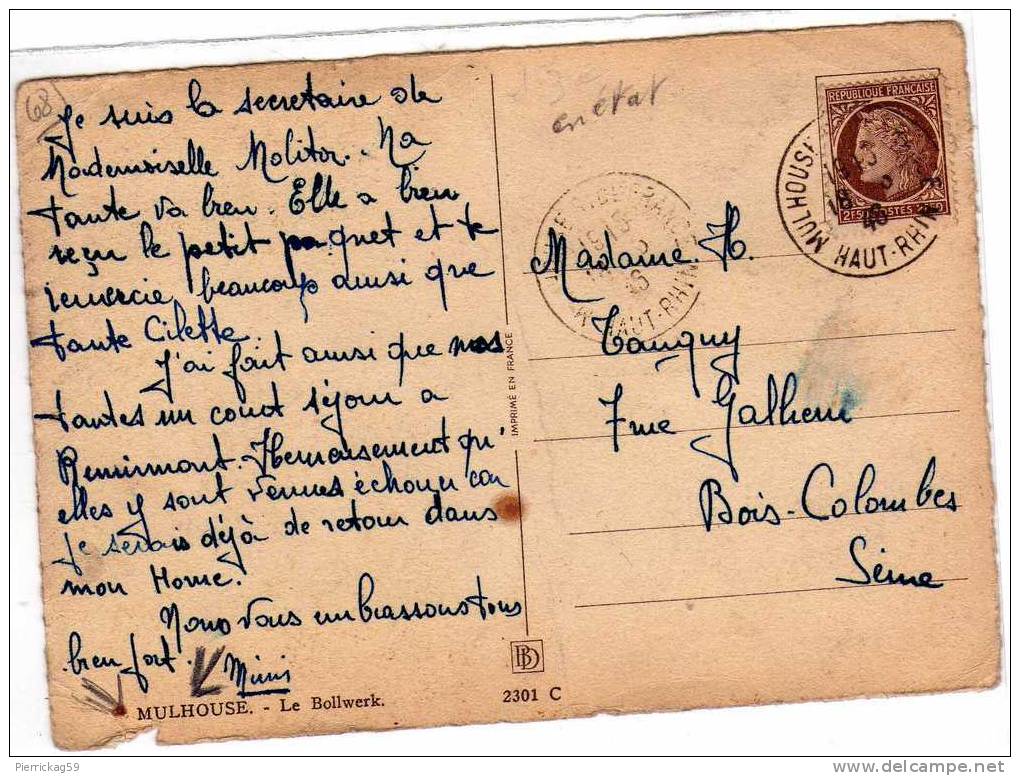 68
Je suis la secretaire de
Mademoiselle Molitor. Ma
tante va bien. Elle a bien
reçu le petit paquet et te
remercie beaucoup ainsi que
tante Cilette.
J'ai fait ainsi que mes
tantes un court séjour a
Remirmont. Heureusement qu'
elles y sont venues échouer car
je serais déjà de retour dans
mon Home.
Nous vous embrassons tous
bien fort.
Mimi
MULHOUSE. - Le Bollwerk.
2301 C
BD
IMPRIMÉ EN FRANCE
en état
RÉPUBLIQUE FRANÇAISE
2F50 POSTES 2F50
MULHOUSE
HAUT-RHIN
HAUT-RHIN
Madame H.
Tanguy
7 rue Galheni
Bois-Colombes
Seine
Pierrickag59
www.delcampe.net